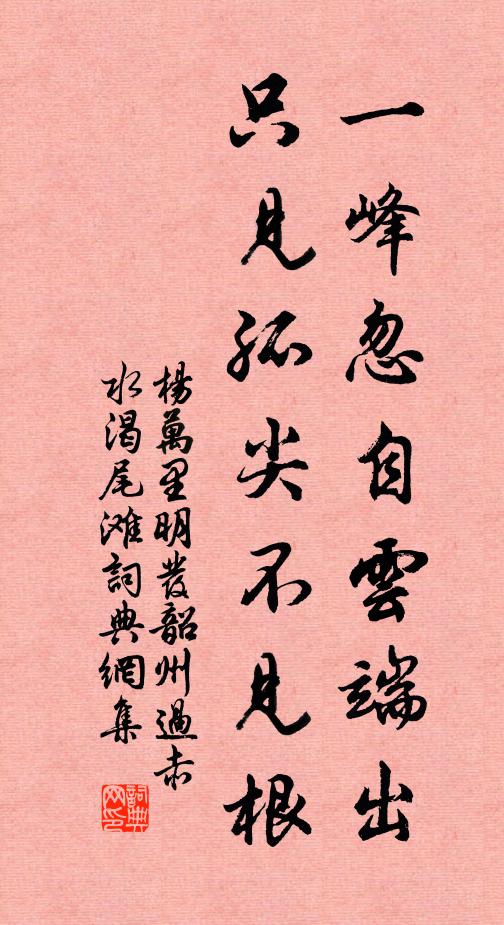 一峰忽自雲端出
只見孤尖不見根
楊萬里明發韶州過赤
水渴尾滩詞典網集
詞典网印